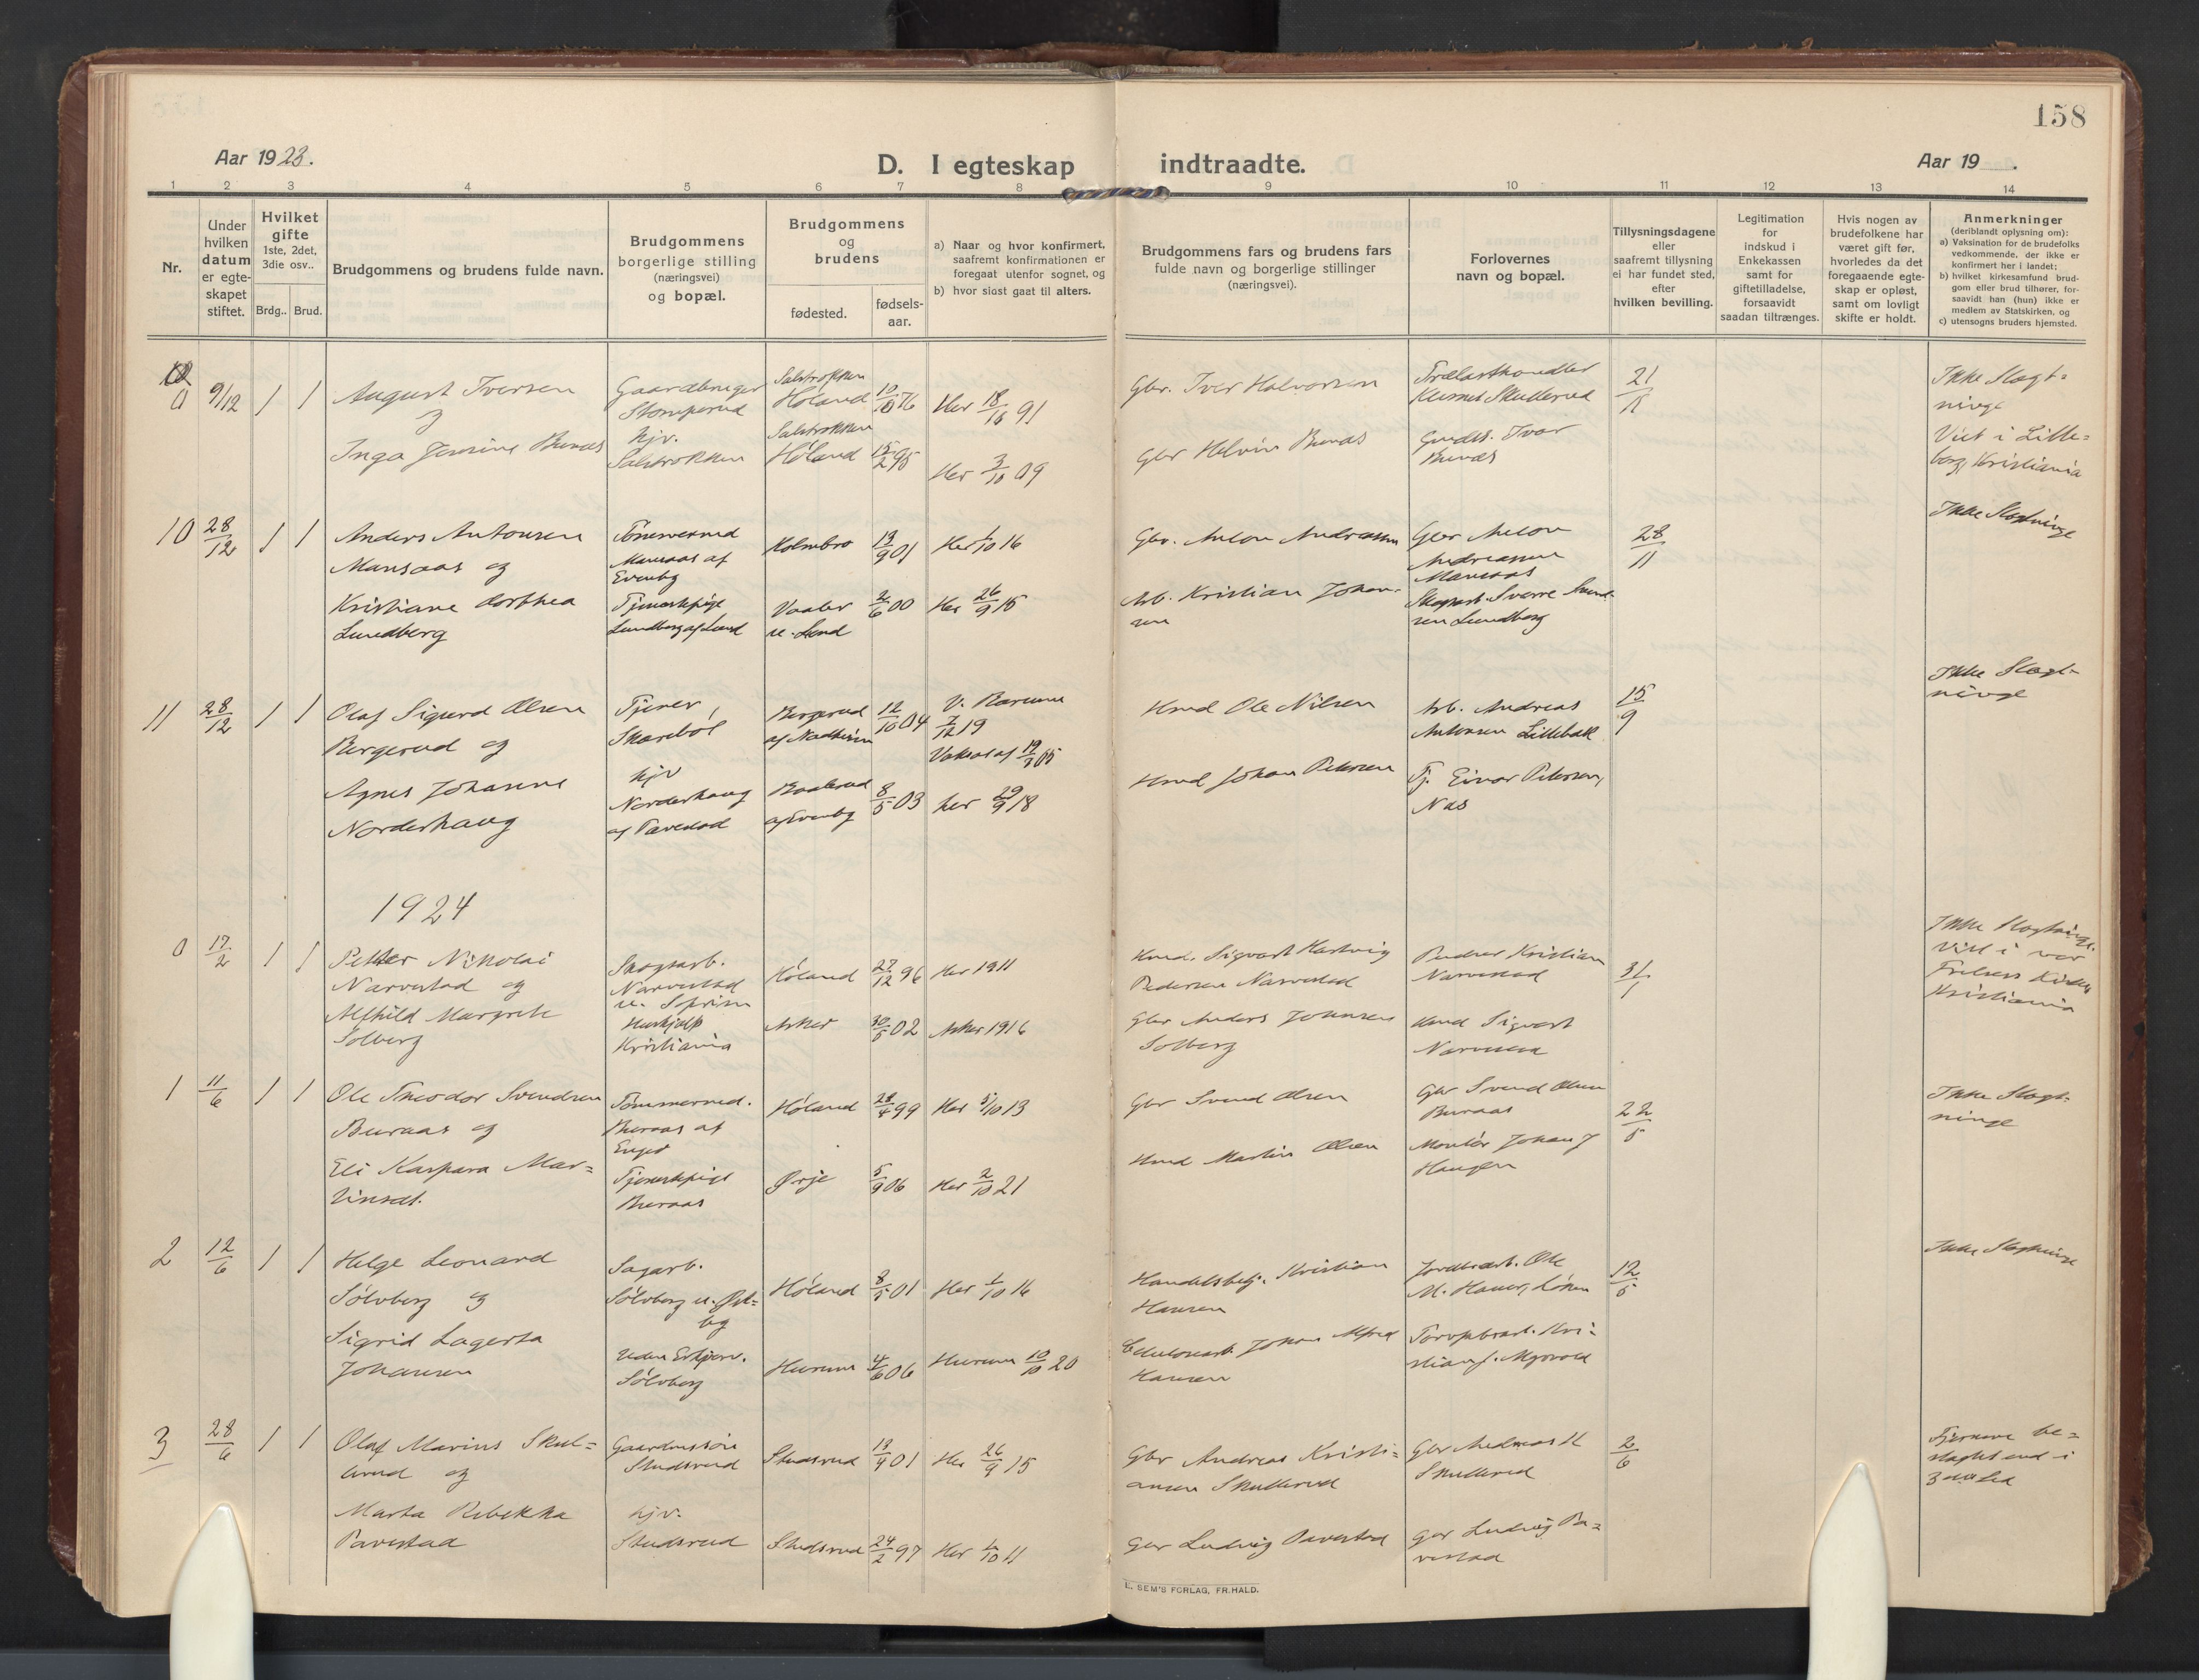 158
Aar 1923.
D. I egteskap indtraadte.
Aar 19 .
1 2 3 4 5 6 7 8 9 10 11 12 13 14
Nr.
Under
hvilken
datum
er egte-
skapet
stiftet.
Hvilket
gifte
1ste, 2det,
3die osv..
Brdg.. Brud.
Brudgommens og brudens fulde navn.
Brudgommens
borgerlige stilling
(næringsvei)
og bopæl.
Brudgommens
og
brudens
fødested.
fødsels-
aar.
a) Naar og hvor konfirmert,
saafremt konfirmationen er
foregaat utenfor sognet, og
b) hvor sidst gaat til alters.
Brudgommens fars og brudens fars
fulde navn og borgerlige stillinger
(næringsvei).
Forlovernes
navn og bopæl.
Tillysningsdagene
eller
saafremt tillysning
ei har fundet sted,
efter
hvilken bevilling.
Legitimation
for
indskud i
Enkekassen
samt for
giftetilladelse,
forsaavidt
saadan tiltrænges.
Hvis nogen av
brudefolkene har
været gift før,
hvorledes da det
foregaaende egte-
skap er opløst,
samt om lovligt
skifte er holdt.
Anmerkninger
(deriblandt oplysning om):
a) Vaksination for de brudefolks
vedkommende, der ikke er
konfirmert her i landet;
b) hvilket kirkesamfund brud-
gom eller brud tilhører, for-
saavidt han (hun) ikke er
medlem av Statskirken, og
c) utensogns bruders hjemsted.
9/12 1 1
August Iversen
Gaardbruger
Høland
10/10 76
Her 18/10 91
Gbr. Iver Halvorsen
Trælasthandler
Skullerud
21/11
Ikke Slegt-
ninge
Viet i Lille-
borg, Kristiania
og
Inga
hjv.
Høland
15/2 95
Her 3/10 09
Gbr
10 28/12 1 1
Anders Antonsen
Mansaas og
Mansaas af
Evenby
Kolmbro
13/9 01
Her 1/10 16
Gbr. Anton Andreassen
Gbr Anton
Andreassen
Mansaas
28/11
Ikke Slegtninge
Kristiane Dorthea
Lundberg
Tjenestpige
Lundberg af Lund
Vaaler
u. Lund
2/6 00
Her 26/9 15
Arb. Kristian Johan-
sen
Skogsarb. Sverre
Lundberg
11 28/12 1 1
Olaf Sigurd Olsen
Bergerud og
Tjener,
Skarebøl
Bergerud
12/10 04
7/12 19
Hmd Ole Nilsen
Arb. Andreas
Antonsen Lillebak
15/9
Ikke Slegt-
ninge
Agnes Johanne
Norderhaug
hjv
Norderhaug
af Tavestad
af Evenby
8/5 03
her 29/9 18
Hmd Johan Petersen
Tj. Einar Petersen,
Næs
1924
0 17/2 1 1
Petter Nikolai
Narvestad og
Skogsarb.
Narvestad
Høland
27/12 96
Her 1911
Hmd. Sigvart Hartvig
Pedersen Narvestad
Peder Kristian
Narvestad
31/1
Ikke Slegtninge.
Viet i vor
Frelsers Kirke
Kristiania
Alfhild Margrete
Solberg
Hushjælp
Kristiania
Asker
30/5 02
Asker 1916
Gbr Anders Johnsen
Solberg
Hmd Sigvart
Narvestad
1 11/6 1 1
Ole Theodor Svendsen
Buraas og
Tømmermd.
Buraas af
Enger
Høland
Her 5/10 13
Gbr Svend Olsen
Gbr Svend Olsen
Buraas
22/5
Ikke Slegt-
ninge
Eli Kaspara Mar-
tinsdt.
Tjenestpige
Buraas
Ørje
5/9 06
Her 2/10 21
Hmd Martin Olsen
Montør Johan J
Haugen
2 12/6 1 1
Helge Leonard
Sølvberg og
Sagarb.
Sølvberg
Høland
8/5 01
Her 1/10 16
Handelsbetj. Kristian
Hansen
Jordbrarb. Ole
M. Hauer, Løken
12/5
Ikke Slegtninge
Sigrid Lagerta
Johansen
Uden Erhverv.
Sølvberg
Hurum
4/6 06
Hurum 10/10 20
Celulosearb. Johan Alfred
Hansen
Kri-
stian J. Myrvold
3 28/6 1 1
Olaf Marius Skul-
lerud og
Gaardbestyrer
Studsrud
Studsrud
13/9 01
Her 26/9 15
Gbr Andreas Kristi-
ansen Skullerud
Gbr Andreas K
Skullerud
2/6
Fjernere be-
slegtet end i
3die led
Marta Rebekka
Tavestad
hjv.
Studsrud
Studsrud
24/2 97
Her 1/10 11
Gbr Ludvig Tavestad
Gbr Ludvig Ta-
vestad
E. SEM'S FORLAG, FR.HALD.